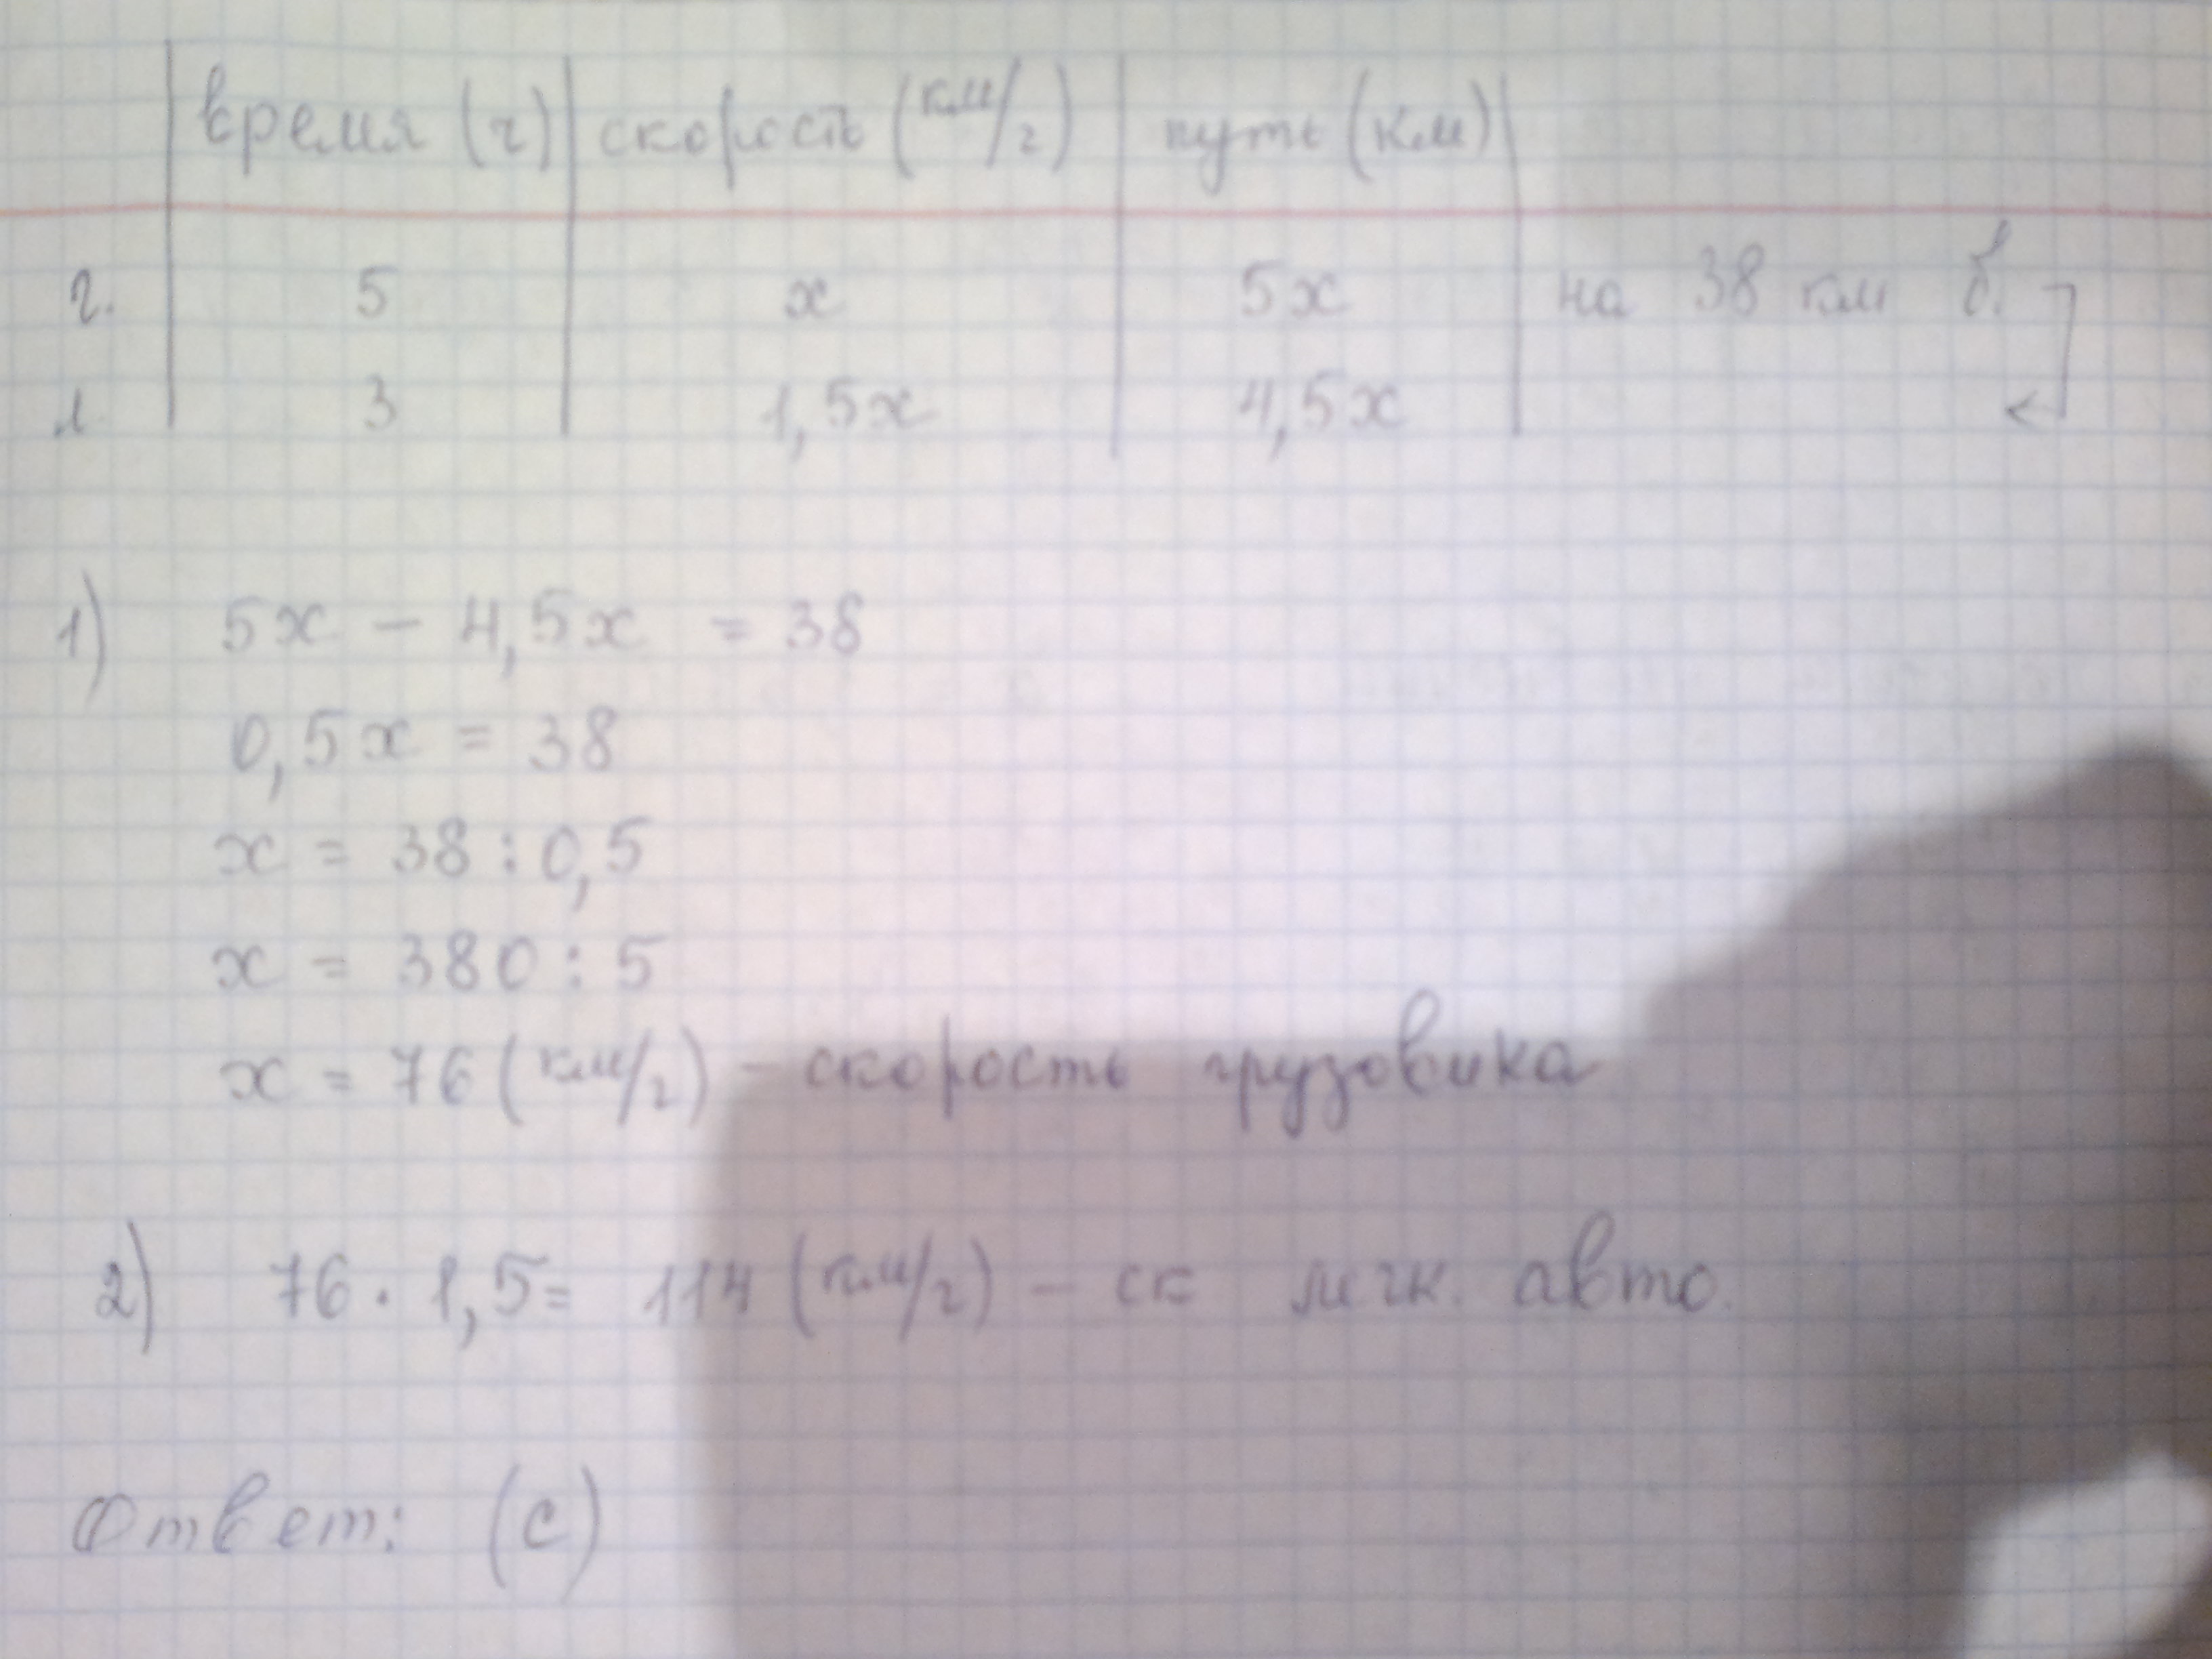 время (ч) скорость (км/ч) путь (км)
г. 5 х 5х на 38 км б.
л. 3 1,5х 4,5х
1) 5х - 4,5х = 38
0,5х = 38
х = 38 : 0,5
х = 380 : 5
х = 76 (км/ч) - скорость грузовика
2) 76 · 1,5 = 114 (км/ч) - ск легк. авто.
Ответ: (с)